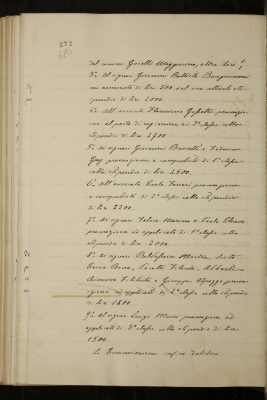 272
680
del comune Gioello Maggiorino, oltre lire
3.° Al signor Giovanni Battista Bongioanni
un aumento di lire 500 sul suo attuale sti-
pendio di lire 2000.
4.° All'avvocato Francesco promozio-
ne al posto di segretario di 2ª classe collo
stipendio di lire 2700.
5.° Ai signori Giovanni Boccetti e Federico
promozione a computisti di 1ª classe
collo stipendio di lire 2500.
6.° All'avvocato Carlo Ferreri promozione
a computisti di 2ª classe collo stipendio
di lire 2200.
7.° Ai signori Felice Marino e Carlo
promozione ad applicati di 1ª classe collo
stipendio di lire 2000.
8.° Ai signori Baldassarre
Bona, Trivero
e Giuseppe promo-
zione ad applicati di 2ª classe collo stipendio
di lire 1800.
9.° Al signor Luigi Mussi promozione ad
applicati di 3ª classe collo stipendio di lire
1500.
La Commissione infine delibera